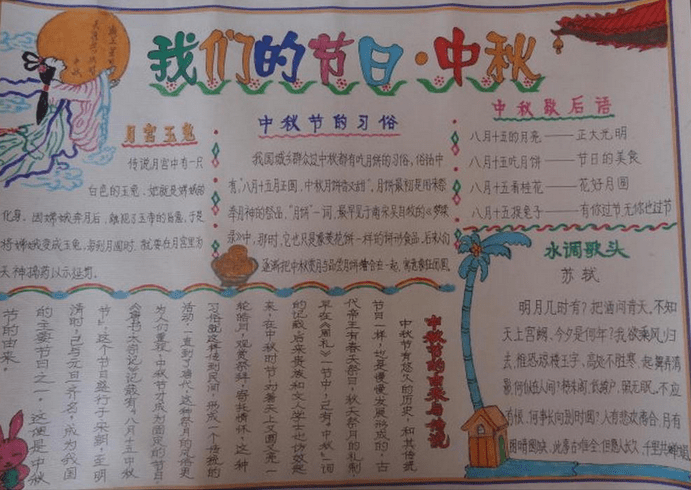 我们的节日·中秋
月宫玉兔
传说月宫中有一只
白色的玉兔，她就是嫦娥的
化身，因嫦娥奔月后，触犯了玉帝的旨意，于是
将嫦娥变成玉兔，每到月圆时，就要在月宫里为
天神捣药以示惩罚。
中秋节的习俗
我国城乡群众过中秋都有吃月饼的习俗，俗话中
有："八月十五月正圆，中秋月饼香又甜"。月饼最初是用来祭
奉月神的祭品，"月饼"一词，最早见于南宋吴自牧的《梦粱
录》中，那时，它也只是像菱花饼一样的饼形食品，后来人们
逐渐把中秋赏月与品尝月饼结合在一起，寓意家人团圆。
中秋歇后语
八月十五的月亮——正大光明
八月十五吃月饼——节日的美食
八月十五看桂花——花好月圆
八月十五捉兔子——有你过节无你也过节
水调歌头
苏轼
明月几时有？把酒问青天，不知
天上宫阙，今夕是何年？我欲乘风归
去，惟恐琼楼玉宇，高处不胜寒。起舞弄清
影，何似在人间？转朱阁，低绮户，照无眠。不应
有恨，何事长向别时圆？人有悲欢离合，月有
阴晴圆缺，此事古难全。但愿人长久，千里共婵娟
中秋节的由来与传说
中秋节有悠久的历史，和其他传统
节日一样，也是慢慢发展形成的，古
代帝王有春天祭日，秋天祭月的礼制，
早在《周礼》一书中，已有"中秋"一词
的记载后来贵族和文人学士也仿效起
来，在中秋时节，对着天上圆又亮一
轮皓月，观赏祭拜，寄托情怀，这种
习俗就这样传到民间，形成一个传统的
活动，一直到了唐代，这种祭月的风俗更
为人们重视，中秋节才成为固定的节日，
《唐书·太宗记》记载有"八月十五中秋
节"，这个节日盛行于宋朝，至明
清时，已与元旦齐名，成为我国
的主要节日之一。这便是中秋
节的由来。